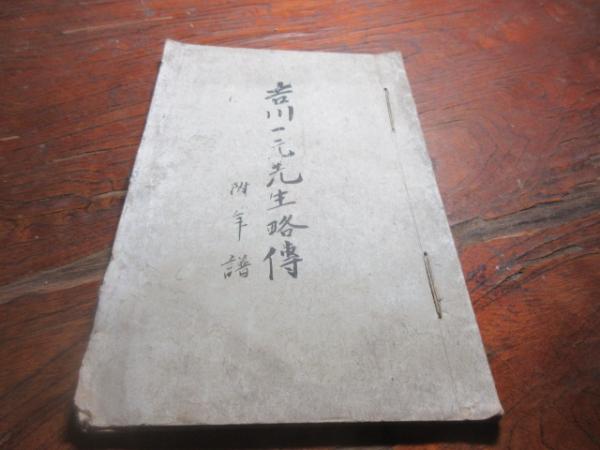 吉川一元先生略傳
附年譜